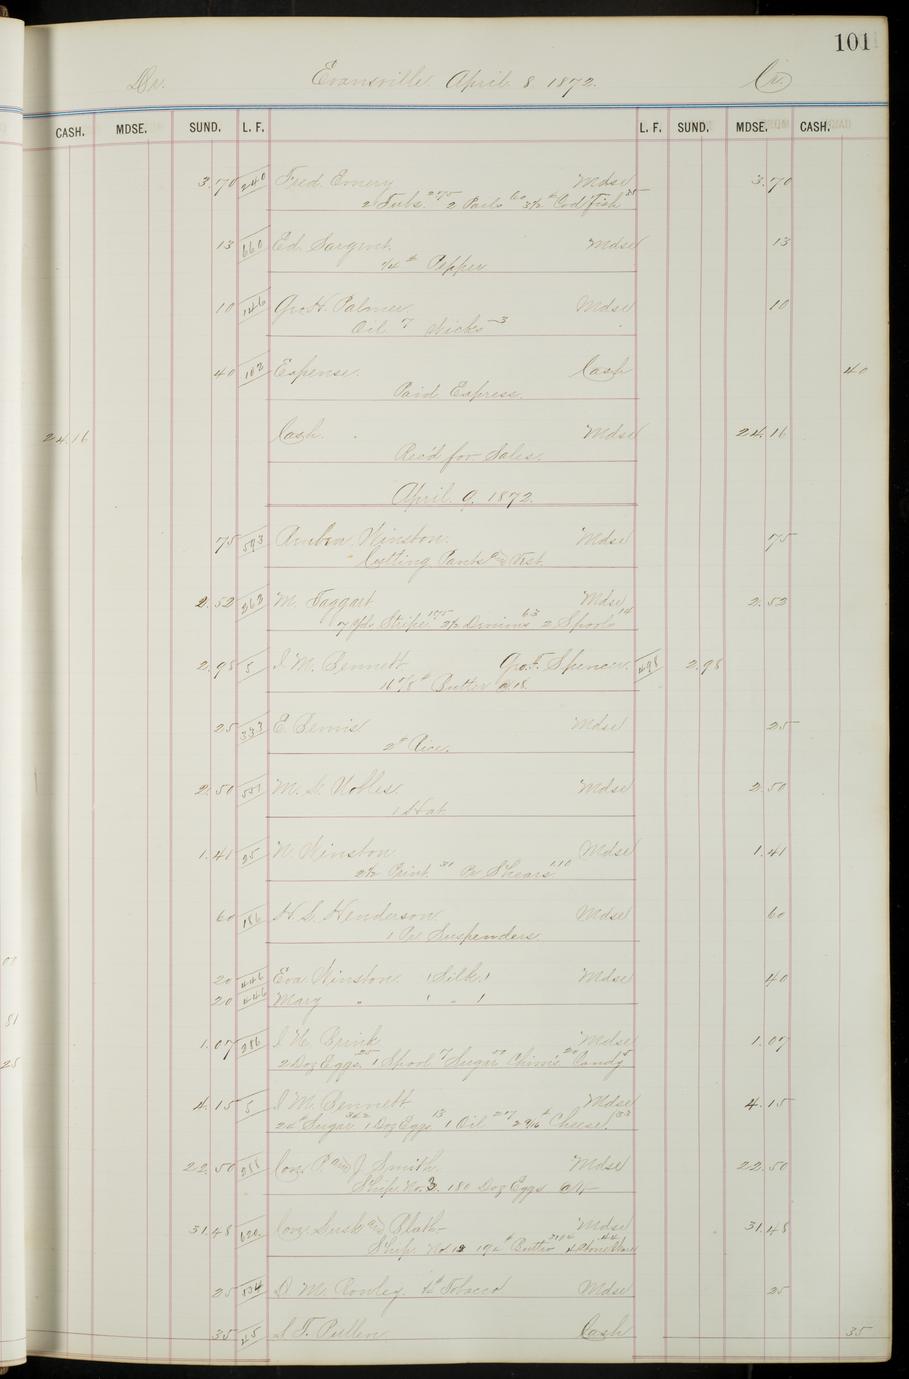 101
Dr. Evansville April 8. 1872. Cr.
CASH. MDSE. SUND. L. F. L. F. SUND. MDSE. CASH.
3.70 240 Fred Emery Mdse 3.70
2 Tubs 275 2 Pails 60 3½ # Codfish 35
13 660 Ed Sargent Mdse 13
¼ # Pepper
10 146 Geo. H. Palmer Mdse 10
Oil 7 Wicks 3
40 102 Expense. Cash 40
Paid Express.
24.16 Cash. Mdse 24.16
Rec'd for Sales.
April 9. 1872.
75 593 Reuben Winston. Mdse 75
Cutting Pants and Vest
2.52 262 M. Taggart Mdse 2.52
7 Yds Stripe 175 2½ Denims 63 2 Spools 14
2.98 5 I. M. Bennett Geo. F. Spencer. 498 2.98
16 5/8 # Butter @ 18.
25 333 E. Bemis Mdse 25
2 # Rice.
2.50 551 M. L. Nobles. Mdse 2.50
1 Hat
1.41 25 N. Winston Mdse 1.41
2½ Print 31 Pr Shears 1.10
60 186 H. S. Henderson Mdse 60
1 Pr Suspenders.
20 446 Eva Winston. 1 Silk 1 Mdse 40
20 446 Mary " 1 " 1
1.07 286 I. W. Brink Mdse 1.07
2 Doz Eggs 25 1 Spool 7 Sugar Candy 5
4.15 5 I. M. Bennett Mdse 4.15
24 # Sugar 342 1 Doz Eggs 13 1 Oil 27 2 3/16 # Cheese 33
22.50 288 Con. P. and J. Smith. Mdse 22.50
Ship. No. 3. 180 Doz Eggs
31.48 622 Con. Lusk and Mdse 31.48
Ship. No 13 194 # Butter 3104 4 Stone Ware 44
25 534 D. M. Rowley. ½ # Tobacco Mdse 25
35 45 S. T. Pullen Cash 35